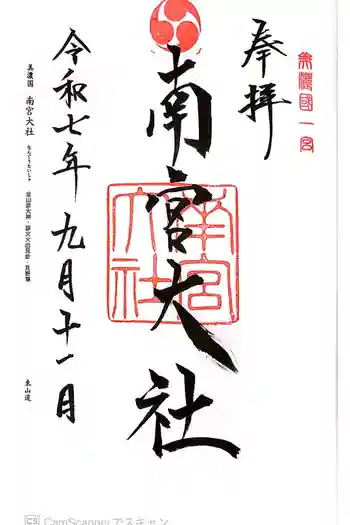 美濃國一宮
奉拝
南宮大社
南宮大社
令和七年九月十一日
美濃国 南宮大社 なんぐうたいしゃ
東山道
CS CamScannerでスキャン